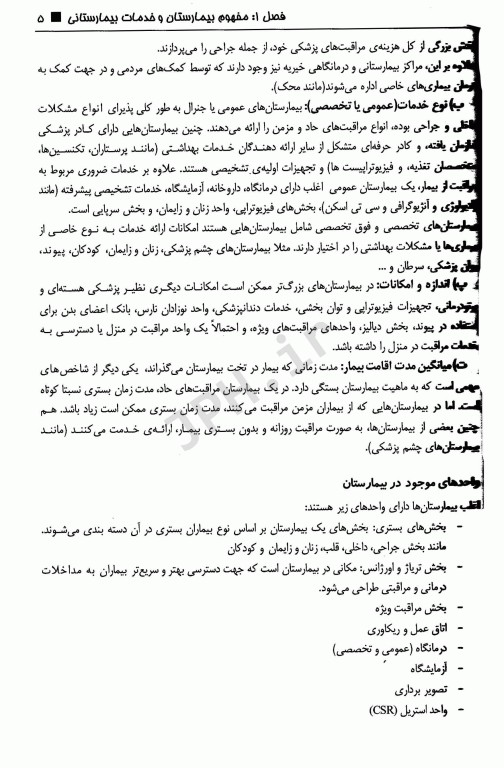 فصل ۱: مفهوم بیمارستان و خدمات بیمارستانی ■ ۵
بخش بزرگی از کل هزینه‌ی مراقبت‌های پزشکی خود، از جمله جراحی را می‌پردازند.
علاوه بر این، مراکز بیمارستانی و درمانگاهی خیریه نیز وجود دارند که توسط کمک‌های مردمی و در جهت کمک به
درمان بیماری‌های خاصی اداره می‌شوند(مانند محک).
ب) نوع خدمات(عمومی یا تخصصی): بیمارستان‌های عمومی یا جنرال به طور کلی پذیرای انواع مشکلات
داخلی و جراحی بوده، انواع مراقبت‌های حاد و مزمن را ارائه می‌دهند. چنین بیمارستان‌هایی دارای کادر پزشکی
سازمان یافته، و کادر حرفه‌ای متشکل از سایر ارائه دهندگان خدمات بهداشتی (مانند پرستاران، تکنسین‌ها،
متخصصان تغذیه، و فیزیوتراپیست ها) و تجهیزات اولیه‌ی تشخیصی هستند. علاوه بر خدمات ضروری مربوط به
مراقبت از بیمار، یک بیمارستان عمومی اغلب دارای درمانگاه، داروخانه، آزمایشگاه، خدمات تشخیصی پیشرفته (مانند
رادیولوژی و آنژیوگرافی و سی تی اسکن)، بخش‌های فیزیوتراپی، واحد زنان و زایمان، و بخش سرپایی است.
بیمارستان‌های تخصصی و فوق تخصصی شامل بیمارستان‌هایی هستند امکانات ارائه خدمات به نوع خاصی از
بیماری‌ها یا مشکلات بهداشتی را در اختیار دارند. مثلا بیمارستان‌های چشم پزشکی، زنان و زایمان، کودکان، پیوند،
پزشکی، سرطان و ...
پ) اندازه و امکانات: در بیمارستان‌های بزرگ‌تر ممکن است امکانات دیگری نظیر پزشکی هسته‌ای و
پرتودرمانی، تجهیزات فیزیوتراپی و توان بخشی، خدمات دندانپزشکی، واحد نوزادان نارس، بانک اعضای بدن برای
استفاده در پیوند، بخش دیالیز، واحدهای مراقبت‌های ویژه، و احتمالاً یک واحد مراقبت در منزل یا دسترسی به
خدمات مراقبت در منزل را داشته باشد.
ت) میانگین مدت اقامت بیمار: مدت زمانی که بیمار در تخت بیمارستان می‌گذراند، یکی دیگر از شاخص‌های
مهمی است که به ماهیت بیمارستان بستگی دارد. در یک بیمارستان مراقبت‌های حاد، مدت زمان بستری نسبتا کوتاه
است. اما در بیمارستان‌هایی که از بیماران مزمن مراقبت می‌کنند، مدت زمان بستری ممکن است زیاد باشد. هم
چنین بعضی از بیمارستان‌ها، به صورت مراقبت روزانه و بدون بستری بیمار، ارائه‌ی خدمت می‌کنند (مانند
بیمارستان‌های چشم پزشکی).
واحدهای موجود در بیمارستان
اغلب بیمارستان‌ها دارای واحدهای زیر هستند:
- بخش‌های بستری: بخش‌های یک بیمارستان بر اساس نوع بیماران بستری در آن دسته بندی می‌شوند.
مانند بخش جراحی، داخلی، قلب، زنان و زایمان و کودکان
- بخش تریاژ و اورژانس: مکانی در بیمارستان است که جهت دسترسی بهتر و سریع‌تر بیماران به مداخلات
درمانی و مراقبتی طراحی می‌شود.
- بخش مراقبت ویژه
- اتاق عمل و ریکاوری
- درمانگاه (عمومی و تخصصی)
- آزمایشگاه
- تصویر برداری
- واحد استریل (CSR)